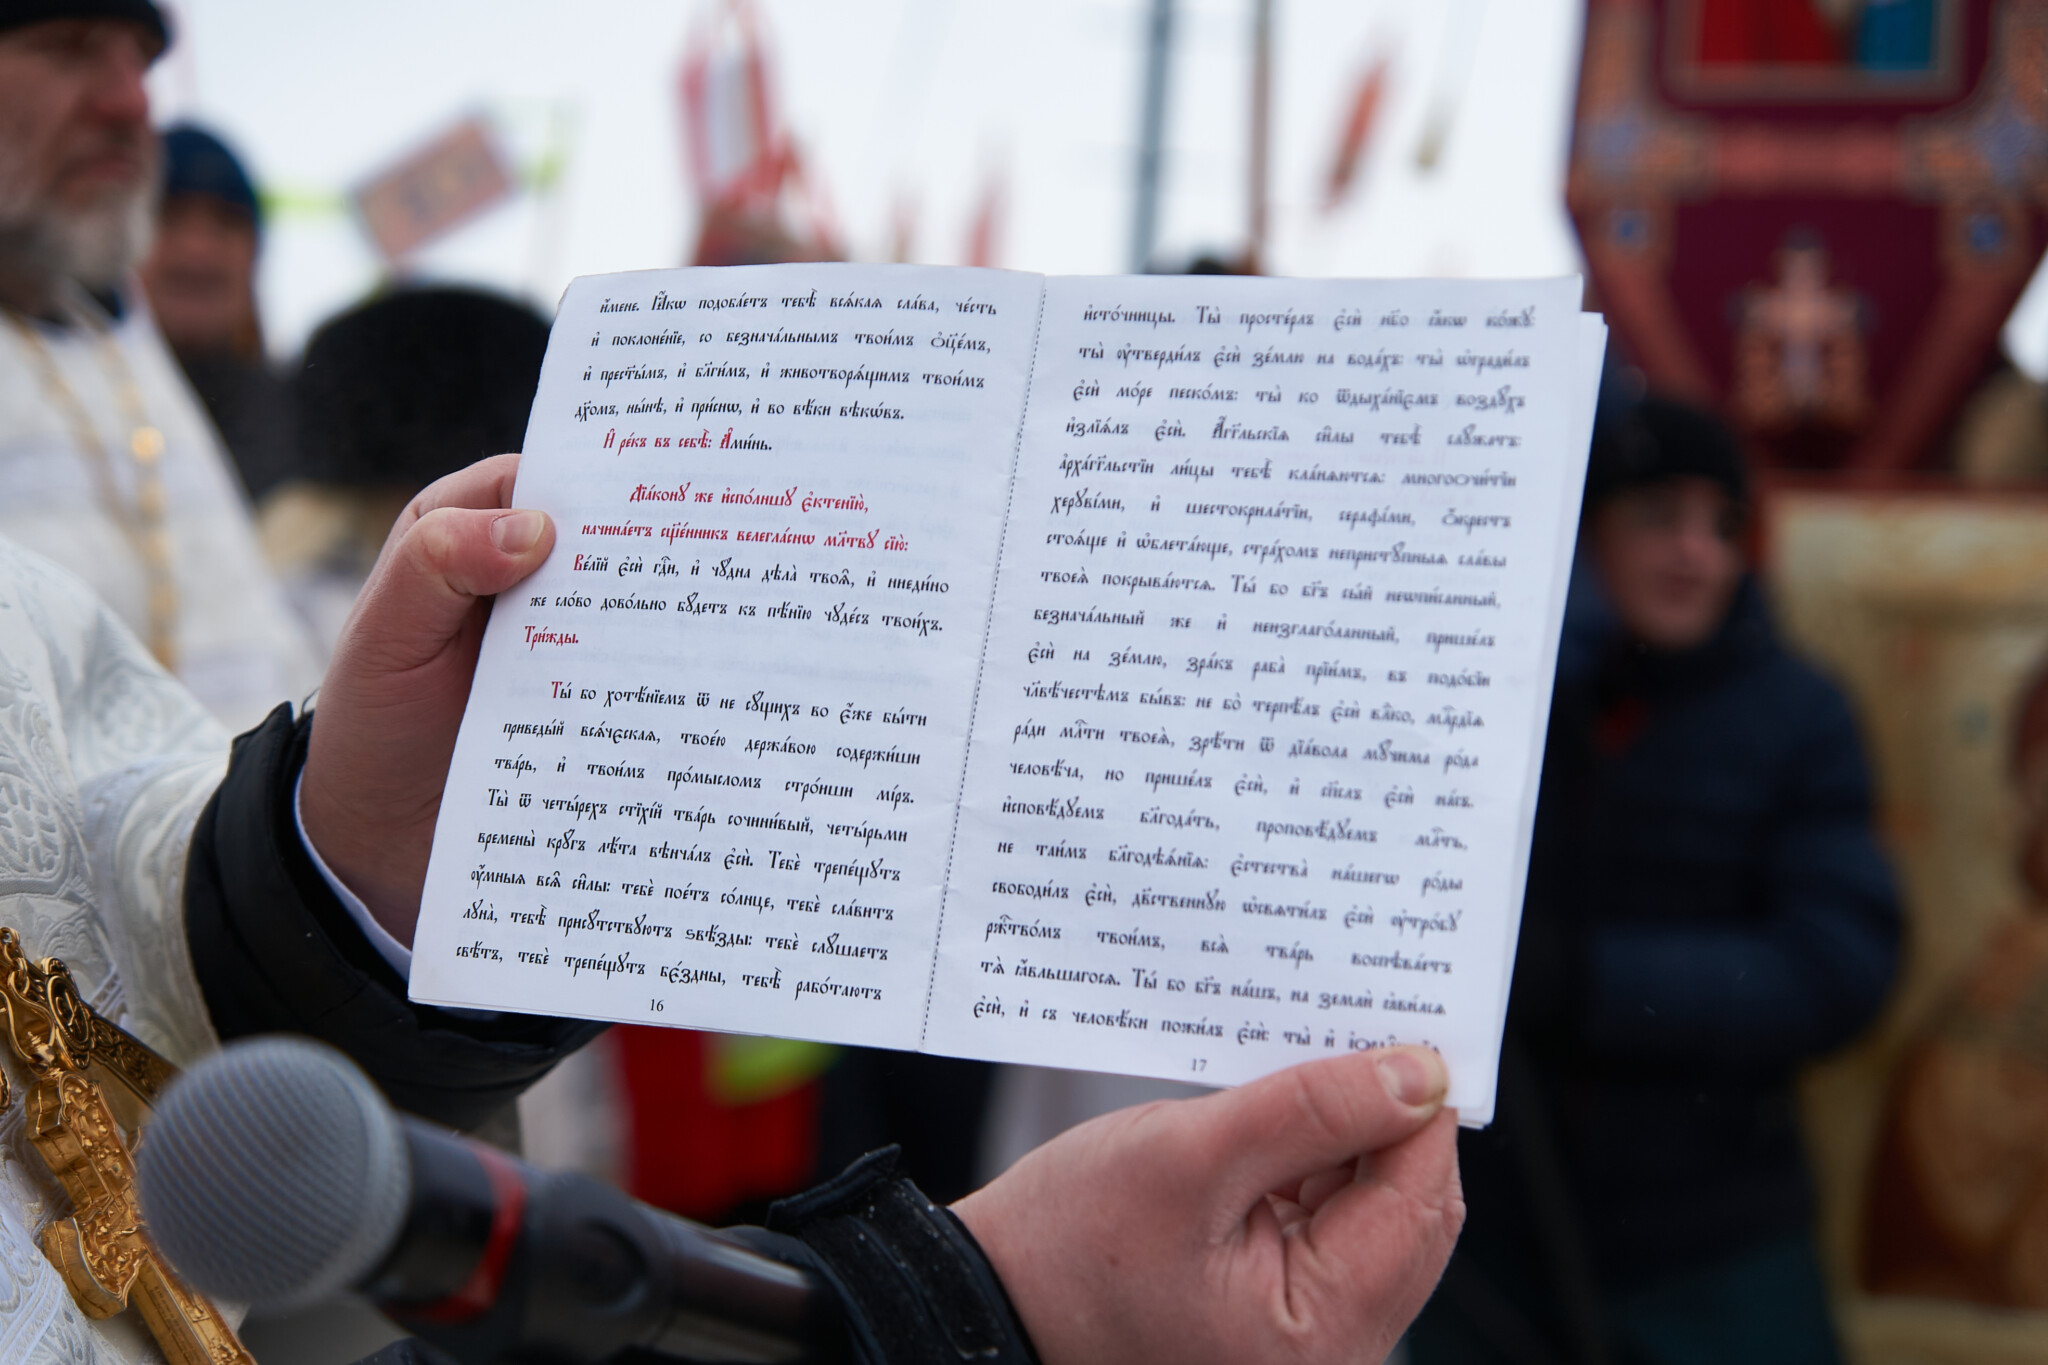 и҆́мене. Ꙗ҆́кѡ подоба́етъ тебѣ̀ всѧ́каѧ сла́ва, че́сть
и҆ поклоне́нїе, со безнача́льнымъ твои́мъ ѻ҆ц҃е́мъ,
и҆ прест҃ы́мъ, и҆ бл҃ги́мъ, и҆ животворѧ́щимъ твои́мъ
дх҃омъ, ны́нѣ, и҆ при́снѡ, и҆ во вѣ́ки вѣкѡ́въ.
И҆ ре́къ въ себѣ̀: А҆ми́нь.
Дїа́конꙋ же и҆спо́лншꙋ є҆ктенїю̀,
начина́етъ сщ҃е́нникъ велегла́снѡ мл҃твꙋ сїю̀:
Ве́лїй є҆сѝ гдⷭ҇и, и҆ чꙋ́дна дѣла̀ твоѧ̑, и҆ ниеди́но
же сло́во дово́льно бꙋ́детъ къ пѣ́нїю чꙋде́съ твои́хъ.
Три́жды.
Ты́ бо хотѣ́нїемъ ѿ не сꙋ́щихъ во є҆́же бы́ти
приведы́й всѧ́чєскаѧ, твое́ю держа́вою содержи́ши
тва́рь, и҆ твои́мъ про́мысломъ стро́иши мі́ръ.
Ты̀ ѿ четы́рехъ стїхі́й тва́рь сочини́вый, четы́рьми
времены̀ крꙋ́гъ лѣ́та вѣнча́лъ є҆сѝ. Тебѐ трепе́щꙋтъ
ᲂу҆́мныѧ всѧ̑ си̑лы: тебѐ пое́тъ со́лнце, тебѐ сла́витъ
лꙋна̀, тебѣ̀ присꙋ́тствꙋютъ ѕвѣ́зды: тебѐ слꙋ́шаетъ
свѣ́тъ, тебѐ трепе́щꙋтъ бє́здны, тебѣ̀ рабо́таютъ
16
и҆сто́чницы. Ты̀ просте́рлъ є҆сѝ нб҃о ꙗ҆́кѡ ко́жꙋ:
ты̀ ᲂу҆тверди́лъ є҆сѝ зе́млю на вода́хъ: ты̀ ѡ҆гради́лъ
є҆сѝ мо́ре песко́мъ: ты̀ ко ѿдыха́нїємъ во́здꙋхъ
и҆злїѧ́лъ є҆сѝ. А҆́гг҃льскїѧ си̑лы тебѣ̀ слꙋ́жатъ:
а҆рха́гг҃льстїи ли́цы тебѣ̀ кла́нѧютсѧ: многоꙮчи́тїи
херꙋві́ми, и҆ шестокрила́тїи, серафі́ми, ѻ҆́крестъ
стоѧ́ще и҆ ѡ҆блета́юще, стра́хомъ непристꙋ́пныѧ сла́вы
твоеѧ̀ покрыва́ютсѧ. Ты́ бо бг҃ъ сы́й неѡпи́санный,
безнача́льный же и҆ неизглаго́ланный, прише́лъ
є҆сѝ на зе́млю, зра́къ раба̀ прїи́мъ, въ подо́бїи
чл҃вѣ́честѣмъ бы́въ: не бо̀ терпѣ́лъ є҆сѝ влⷣко, млⷭ҇рдїѧ
ра́ди млⷭ҇ти твоеѧ̀, зрѣ́ти ѿ дїа́вола мꙋ́чима ро́да
человѣ́ча, но прише́лъ є҆сѝ, и҆ сп҃слъ є҆сѝ на́съ.
и҆сповѣ́дꙋемъ бл҃года́ть, проповѣ́дꙋемъ млⷭ҇ть,
не таи́мъ бл҃годѣѧ́нїѧ: є҆стества̀ на́шегѡ ро́ды
свободи́лъ є҆сѝ, дв҃ственнꙋю ѡ҆свѧти́лъ є҆сѝ ᲂу҆тро́бꙋ
ржⷭ҇тво́мъ твои́мъ, всѧ̀ тва́рь воспѣва́етъ
тѧ̀ ꙗ҆́вльшагосѧ. Ты́ бо бг҃ъ на́шъ, на землѝ ꙗ҆ви́лсѧ
є҆сѝ, и҆ съ человѣ́ки пожи́лъ є҆сѝ: ты̀ и҆
17